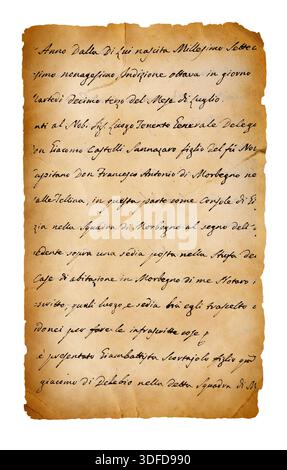 Anno Dalla Di Lui nascita Millesimo Settec
simo nonagesimo, Indizione ottava in giorno
Martedi decimo terzo del Mese Di Luglio.
nti al Nob. Sig. Luogo Tenente Generale Delega
on Giacomo Castelli Sannazaro figlio del fù Nob
apitano Don Francesco Antonio di Morbegno ne
alle Tellina, in questa parte come Console di
zia nella Squadra di Morbegno al segno dell'
sedente sopra una sedia posta nella Stufa de
Case di abitazione in Morbegno di me Notaro i
scritto, quali luogo, e sedia egli trascelto
donei per fare le infrascritte cose
è presentato Giambattista Scortajolo figlio
giacomo di Delebio nella detta Squadra di M
alamy
Image ID: 3DFD990
www.alamy.com